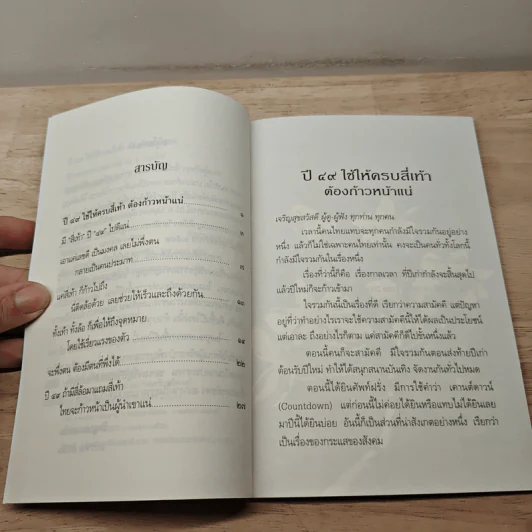 สารบัญ
ปี ๔๙ ใช้ให้ครบสี่เท้า ต้องก้าวหน้าแน่ ๑
มี "สี่เท้า" ปี "๔๙" ไปดีแน่
เอาแค่เครดิ เป็นมงคล เลยไม่พึ่งตน
กลายเป็นคนประมาท ๘
แต่สี่เท้า ก็ก้าวไปถึง
นี่ติดล้อด้วย เลยช่วยให้เร็วและถึงด้วยกัน
ทั้งเท้า ทั้งล้อ ก็เพื่อให้ถึงจุดหมาย
โดยใช้เรี่ยวแรงของตัว
จะพึ่งตน ต้องมีตนที่พึ่งได้ ๒๒
ปี ๔๙ ถ้ามีสี่ล้อมาแถมสี่เท้า
ไทยจะก้าวหน้าเป็นผู้นำเขาแน่ ๒๗
ปี ๔๙ ใช้ให้ครบสี่เท้า
ต้องก้าวหน้าแน่
เจริญสุขสวัสดี ผู้ดู-ผู้ฟัง ทุกท่าน ทุกคน
เวลานี้คนไทยแทบจะทุกคนกำลังมีใจรวมกันอยู่อย่าง
หนึ่ง แล้วก็ไม่ใช่เฉพาะคนไทยเท่านั้น คงจะเป็นคนทั่วทั้งโลกนี้
กำลังมีใจรวมกันในเรื่องหนึ่ง
เรื่องที่ว่านี้ก็คือ เรื่องกาลเวลา ที่ปีเก่ากำลังจะสิ้นสุดไป
แล้วปีใหม่ก็จะก้าวเข้ามา
ใจรวมกันนี้เป็นเรื่องที่ดี เรียกว่าความสามัคคี แต่ปัญหา
อยู่ที่ว่าทำอย่างไรเราจะใช้ความสามัคคีนี้ให้ได้ผลเป็นประโยชน์
แต่เอาละ ถึงอย่างไรก็ตาม แค่สามัคคีก็ดีไปขั้นหนึ่งแล้ว
ตอนนี้คนก็จะสามัคคี มีใจรวมกันตอนส่งท้ายปีเก่า
ต้อนรับปีใหม่ ทำให้ได้สนุกสนานบันเทิง จัดงานกันทั่วไปหมด
ตอนนี้ได้ยินศัพท์ฝรั่ง มีการใช้คำว่า เคานต์ดาวน์
(Countdown) แต่ก่อนนี้ไม่ค่อยได้ยินหรือแทบไม่ได้ยินเลย
มาปีนี้ได้ยินบ่อย อันนี้ก็เป็นส่วนที่น่าสังเกตอย่างหนึ่ง เรียกว่า
เป็นเรื่องของกระแสของสังคม